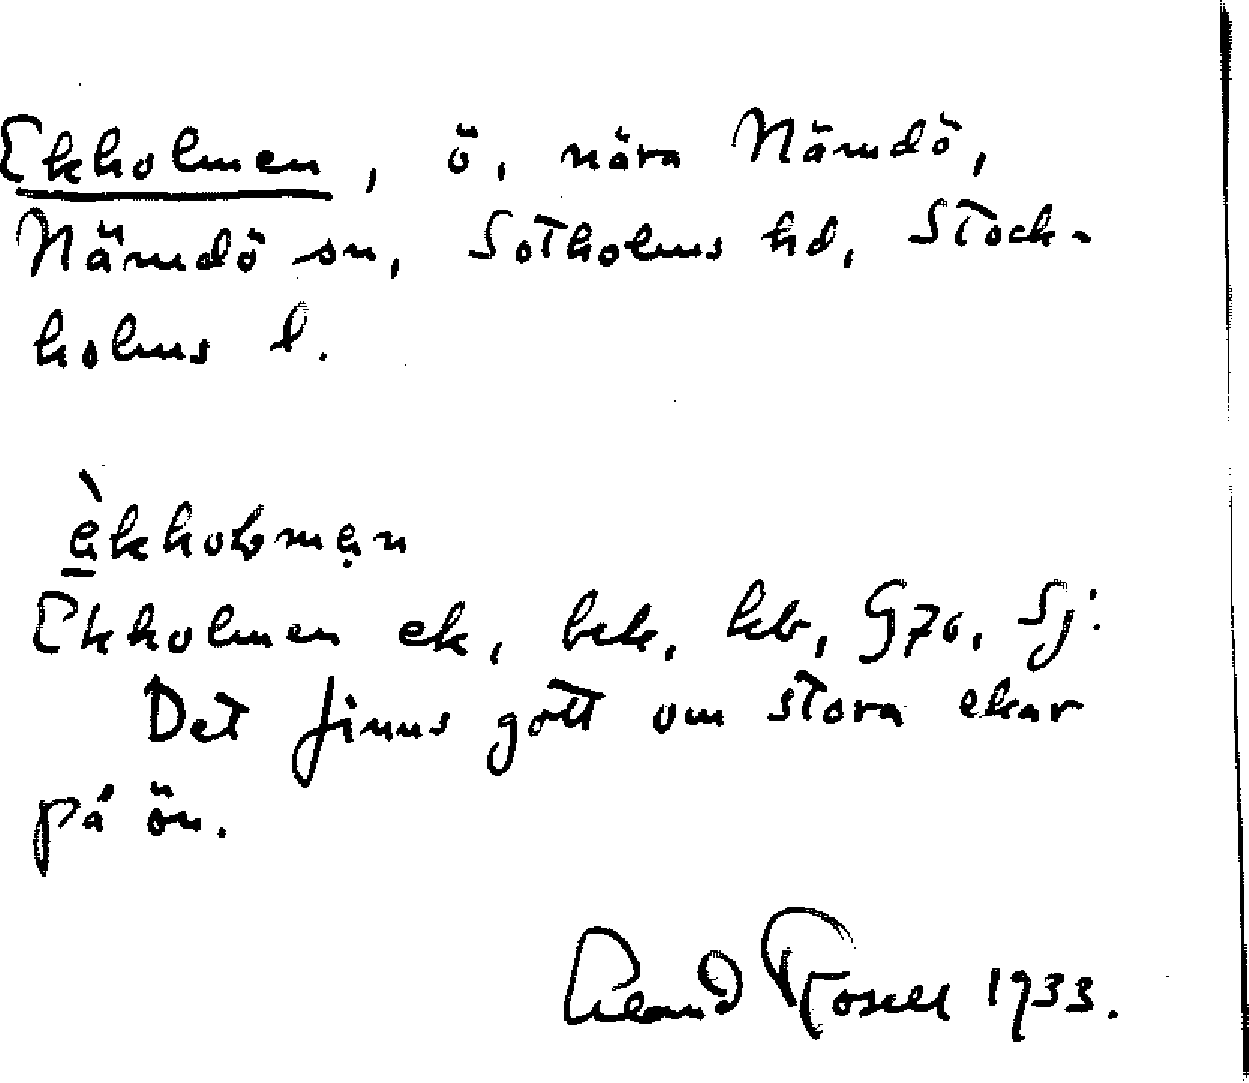 Ekholmen, ö, nära Nämdö,
Nämdö sn, Sotholms hd, Stock-
holms l.
èkholmən
Ekholmen ek, bek, kb, G70, Sj:
Det finns gott om stora ekar
på ön.
1933.